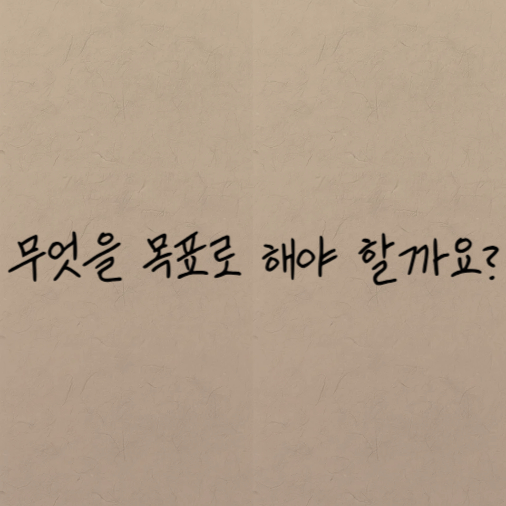 무엇을 목표로 해야 할까요?